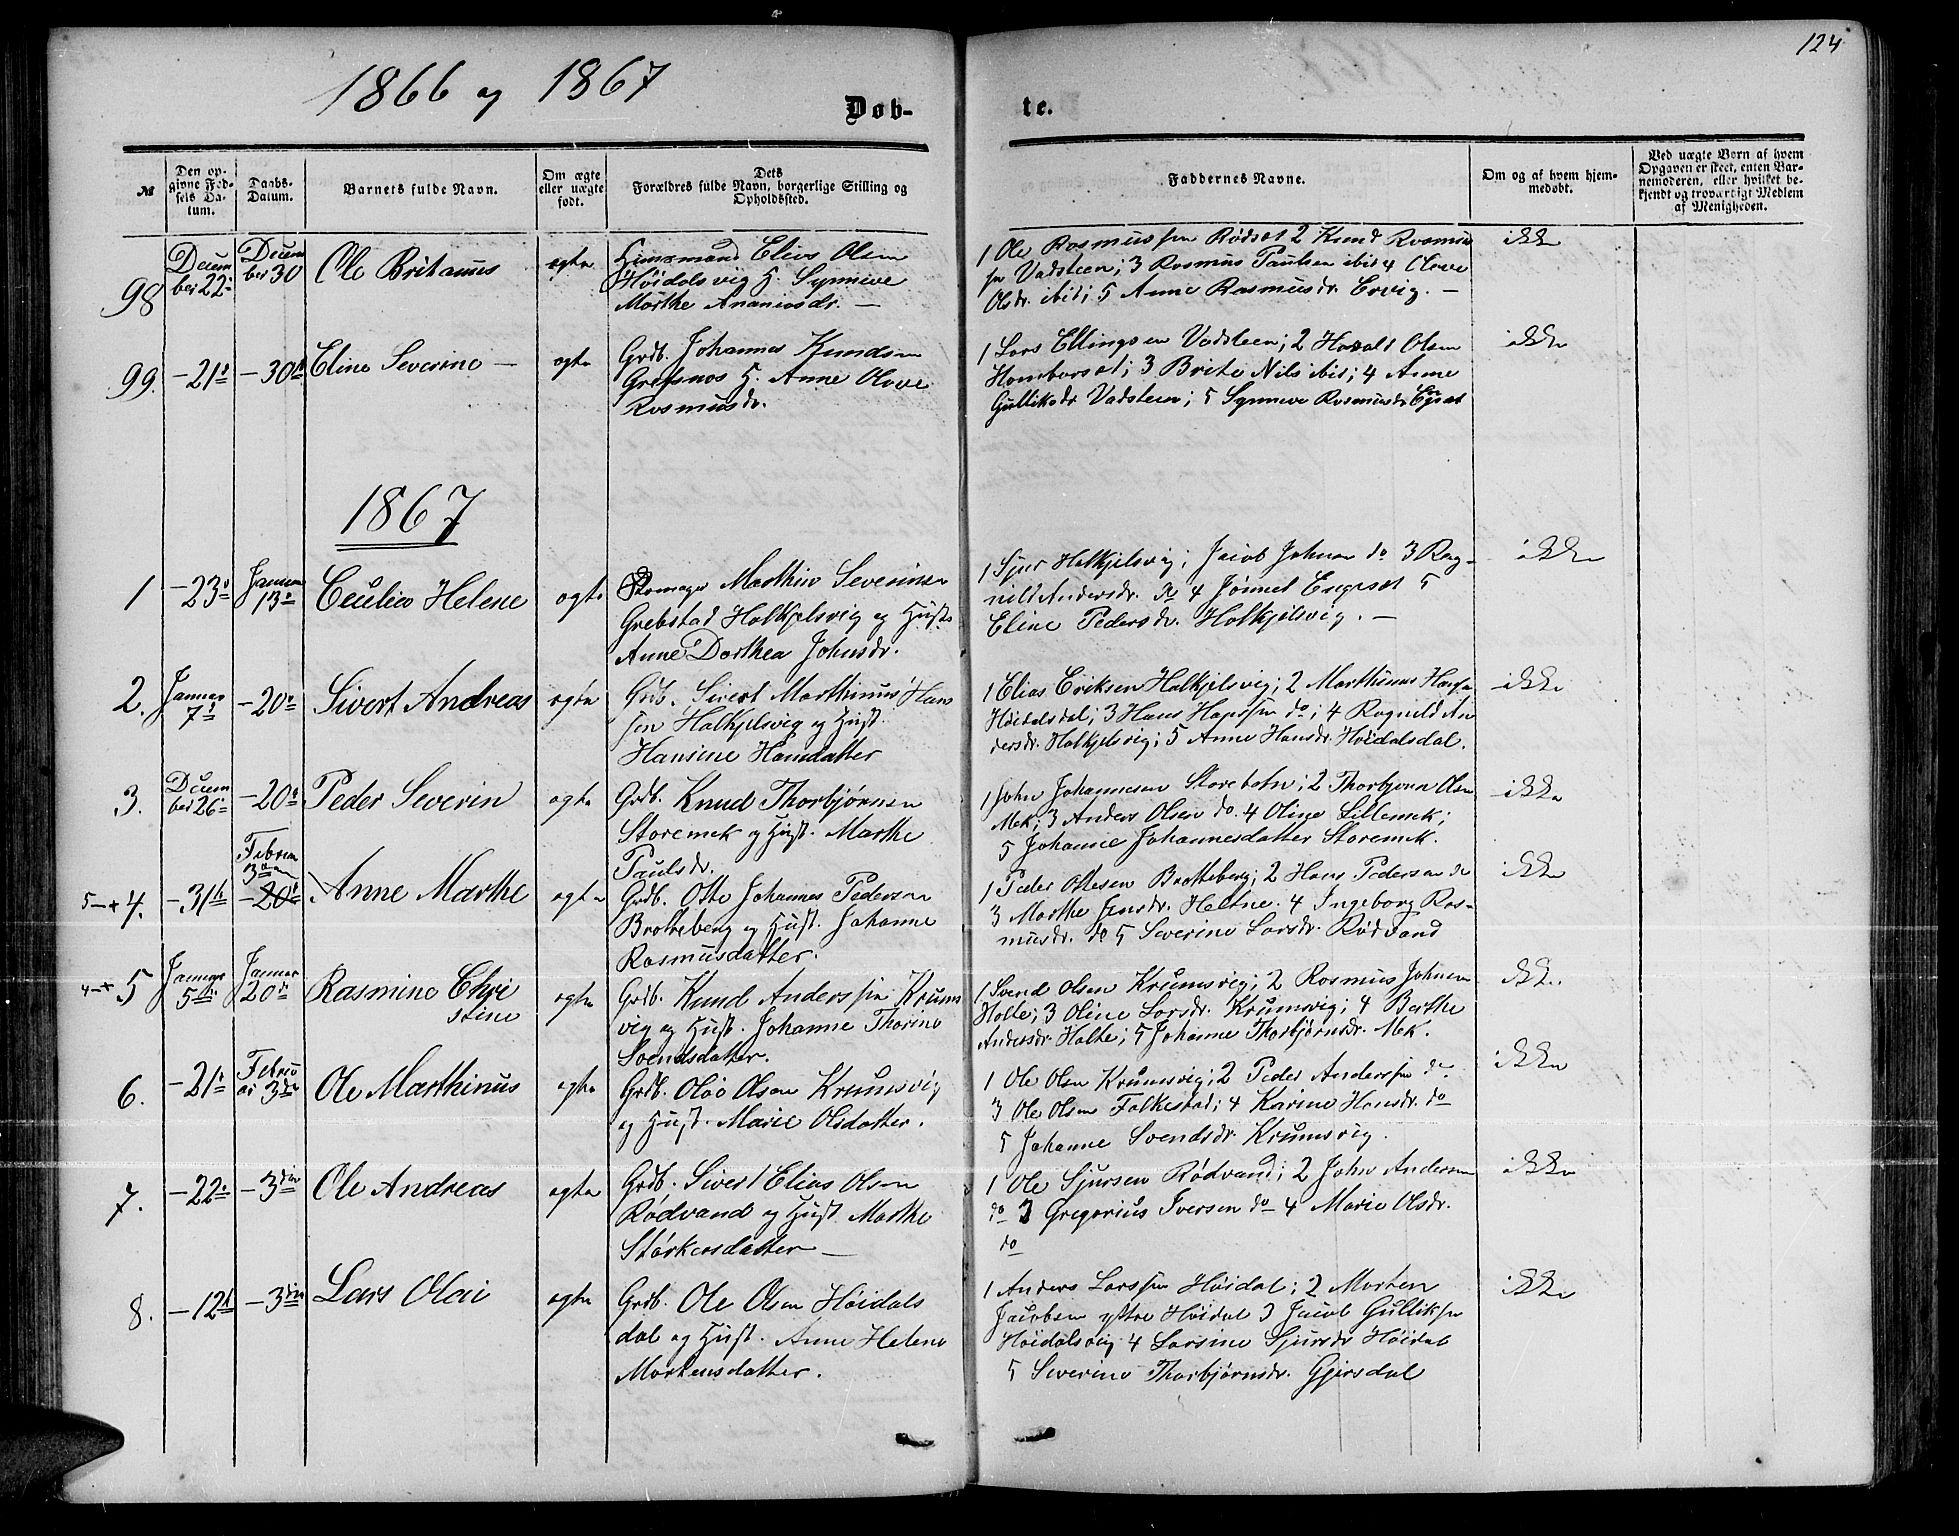 124
1866 og 1867
Døb-
te.
№
Den op-
givne Fød-
sels Da-
tum.
Daabs-
Datum.
Barnets fulde Navn.
Om ægte
eller uægte
født.
Dets
Forældres fulde Navn, borgerlige Stilling og
Opholdssted.
Faddernes Navne.
Om og af hvem hjem-
medøbt.
Ved uægte Børn af hvem
Opgaven er skeet, enten Bar-
nemoderen, eller hvilket be-
kjendt og troværdigt Medlem
af Menigheden.
98
Decem
ber 22
Decem
ber 30
Ole Britanus
ægte
Huusmand Elias Olsen
Høidalsvig H. Synneve
Marthe Ananiasdr. —
1 Ole Rasmussen Rødset 2 Knud Rasmus
sen Vadsteen; 3 Rasmus Paulsen ibid 4 Olave
Olsdr. ibid; 5 Anne Rasmusdr. Ervig. —
ikke
99.
-21
-30
Eline Severine —
ægte
Grdb. Johannes Knudsen
Grefsnes H. Anne Olave
Rasmusdr.
1 Lars Ellingsen Vadsteen; 2 Harald Olsen
Hamborset; 3 Brite Nils ibid; 4 Anne
Gulliksdr Vadsteen; 5 Synneve Rasmusdr
ikke
1867
1
-23
Januar
13
Cecilia Helene
ægte
Skomager Marthin Severinsen
Grebstad Halkjelsvig og Hust.
Anne Dorthea Johnsdr.
1 Sjur Halkjelsvig; Jacob Johnsen do 3 Rag-
nild Andersdr. do 4 Jønnet Engeset 5
Eline Pedersdr. Halkjelsvig. —
ikke
2.
Januar
7
-20
Sivert Andreas
ægte
Grdb. Sivert Marthinus Hans
sen Halkjelsvig og Hust.
Hansine Hansdatter
1 Elias Eriksen Halkjelsvig; 2 Marthinus Hansen
Høidalsdal; 3 Hans Hanssen do; 4 Ragnild An
dersdr. Halkjelsvig; 5 Anne Hansdr. Høidalsdal.
ikke
3.
Decem
ber 26
-20
Peder Severin
ægte
Grdb. Knud Thorbjørnsen
Storemek og Hust. Marthe
Paulsdr.
1 John Johannesen Storeholm; 2 Thorbjørn Olsen
Mek; 3 Anders Olsen do. 4 Oline Lillemek;
5 Johanne Johannesdatter Storemek.
ikke
5-+ 4.
-31
Februar
3
-20
Anne Marthe
ægte
Grdb. Otte Johannes Pedersen
Brotteberg og Hust. Johanne
Rasmusdatter.
1 Peder Ottesen Brotteberg; 2 Hans Pedersen do
3 Marthe Jensdr. Heltne. 4 Ingeborg Ras-
musdr. do 5 Severine Larsdr. Rødvand
ikke
4-+ 5
Januar
5
Januar
20
Rasmine Chri
stine
ægte
Grdb. Knud Anderssen Krums
vig og Hust. Johanne Thorine
Svendsdatter.
1 Svend Olsen Krumsvig; 2 Rasmus Johnsen
Holte; 3 Oline Larsdr. Krumsvig; 4 Berthe
Andersdr. Holte; 5 Johanne Thorbjørnsdr. Mek.
ikke
6.
-21
Febru
ar 3
Ole Marthinus
ægte
Grdb. Ole Olsen Krumsvig
og Hust. Marie Olsdatter.
1 Ole Olsen Krumsvig; 2 Peder Anderssen do
3 Ole Olsen Folkestad; 4 Karine Hansdr. do
5 Johanne Svendsdr. Krumsvig.
ikke
7.
-22
-3
Ole Andreas
ægte
Grdb. Sivert Elias Olsen
Rødvand og Hust Marthe
Størkersdatter —
1 Ole Sjursen Rødvand; 2 John Andersen
do 3 Gregorius Iversen do 4 Marie Olsdr.
do
ikke
8.
-12
-3
Lars Olai
ægte
Grdb. Ole Olsen Høidals
dal og Hust. Anne Helene
Mortensdatter.
1 Anders Larssen Høidal; 2 Morten
Jacobsen ystre Høidal 3 Jacob Gulliksen
Høidalsvig 4 Larsine Sjursdr Høidal
5 Severine Thorbjørnsdr. Gjersdal
ikke